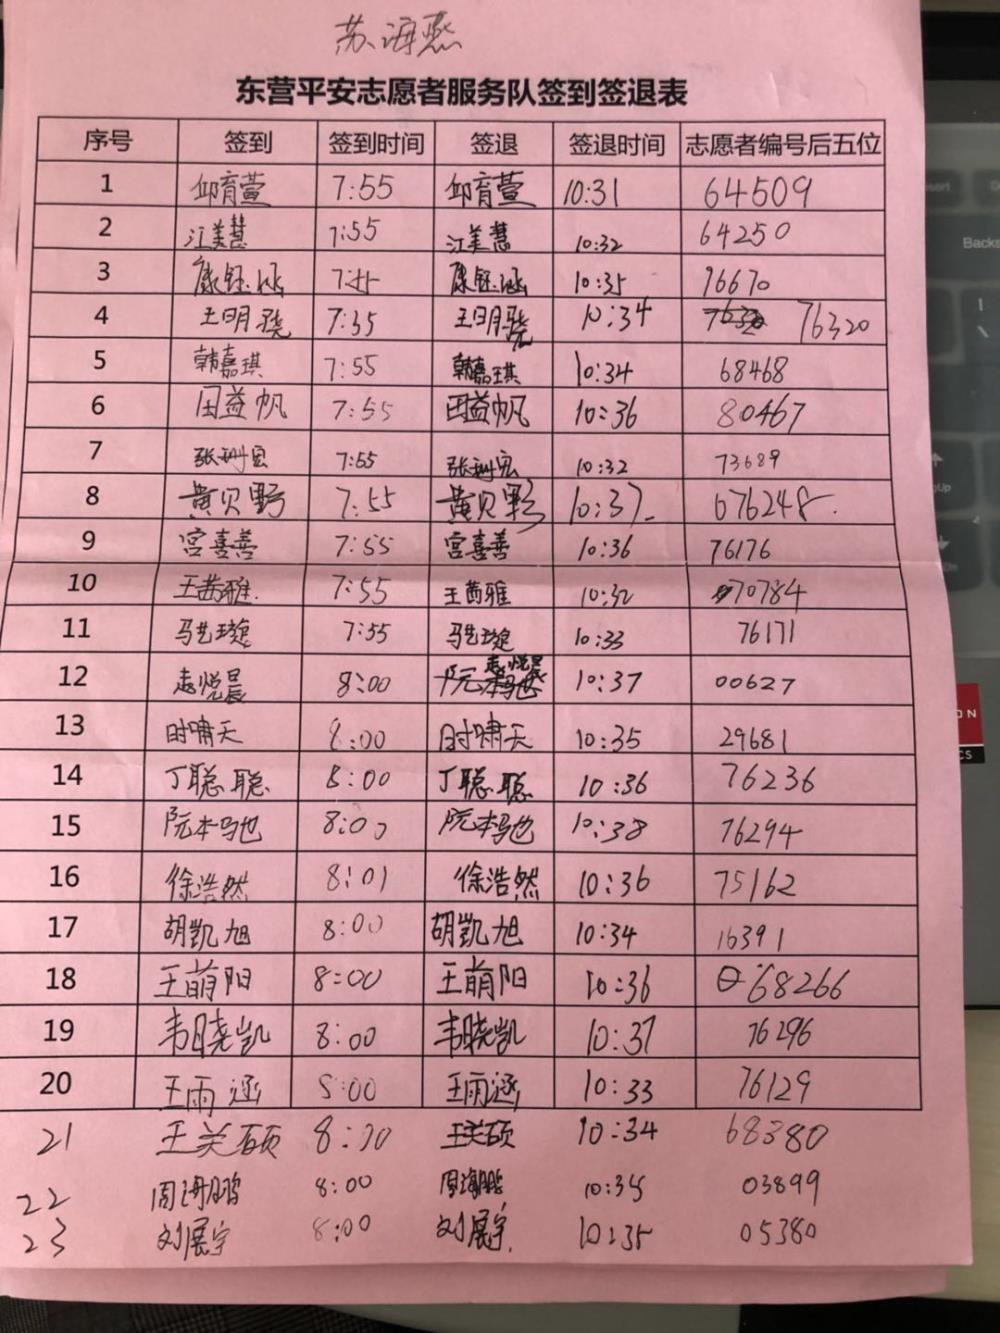 苏海燕
东营平安志愿者服务队签到签退表
序号 签到 签到时间 签退 签退时间 志愿者编号后五位
1 邱育萱 7:55 邱育萱 10:31 64509
2 江美慧 7:55 江美慧 10:32 64250
3 康钰涵 7:55 康钰涵 10:35 96670
4 王明骁 7:55 王明骁 10:34 76320
5 韩嘉琪 7:55 韩嘉琪 10:34 68468
6 田益帆 7:55 田益帆 10:36 80467
7 张珊宏 7:55 张珊宏 10:32 73689
8 黄贝野 7:55 黄贝野 10:37 676248
9 宫喜善 7:55 宫喜善 10:36 76176
10 王茜雅 7:55 王茜雅 10:32 70784
11 马艺璇 7:55 马艺璇 10:33 76171
12 悦晨 8:00 10:37 00627
13 时啸天 8:00 时啸天 10:35 29681
14 丁聪聪 8:00 丁聪聪 10:36 76236
15 阮本驰 8:00 阮本驰 10:38 76294
16 徐浩然 8:01 徐浩然 10:36 75162
17 胡凯旭 8:00 胡凯旭 10:34 16391
18 王萌阳 8:00 王萌阳 10:36 68266
19 韦晓凯 8:00 韦晓凯 10:37 76296
20 王雨涵 8:00 王雨涵 10:33 76129
21 王美硕 8:00 王美硕 10:34 68380
22 周海鹏 8:00 周海鹏 10:35 03899
23 刘展宇 8:00 刘展宇 10:35 05380